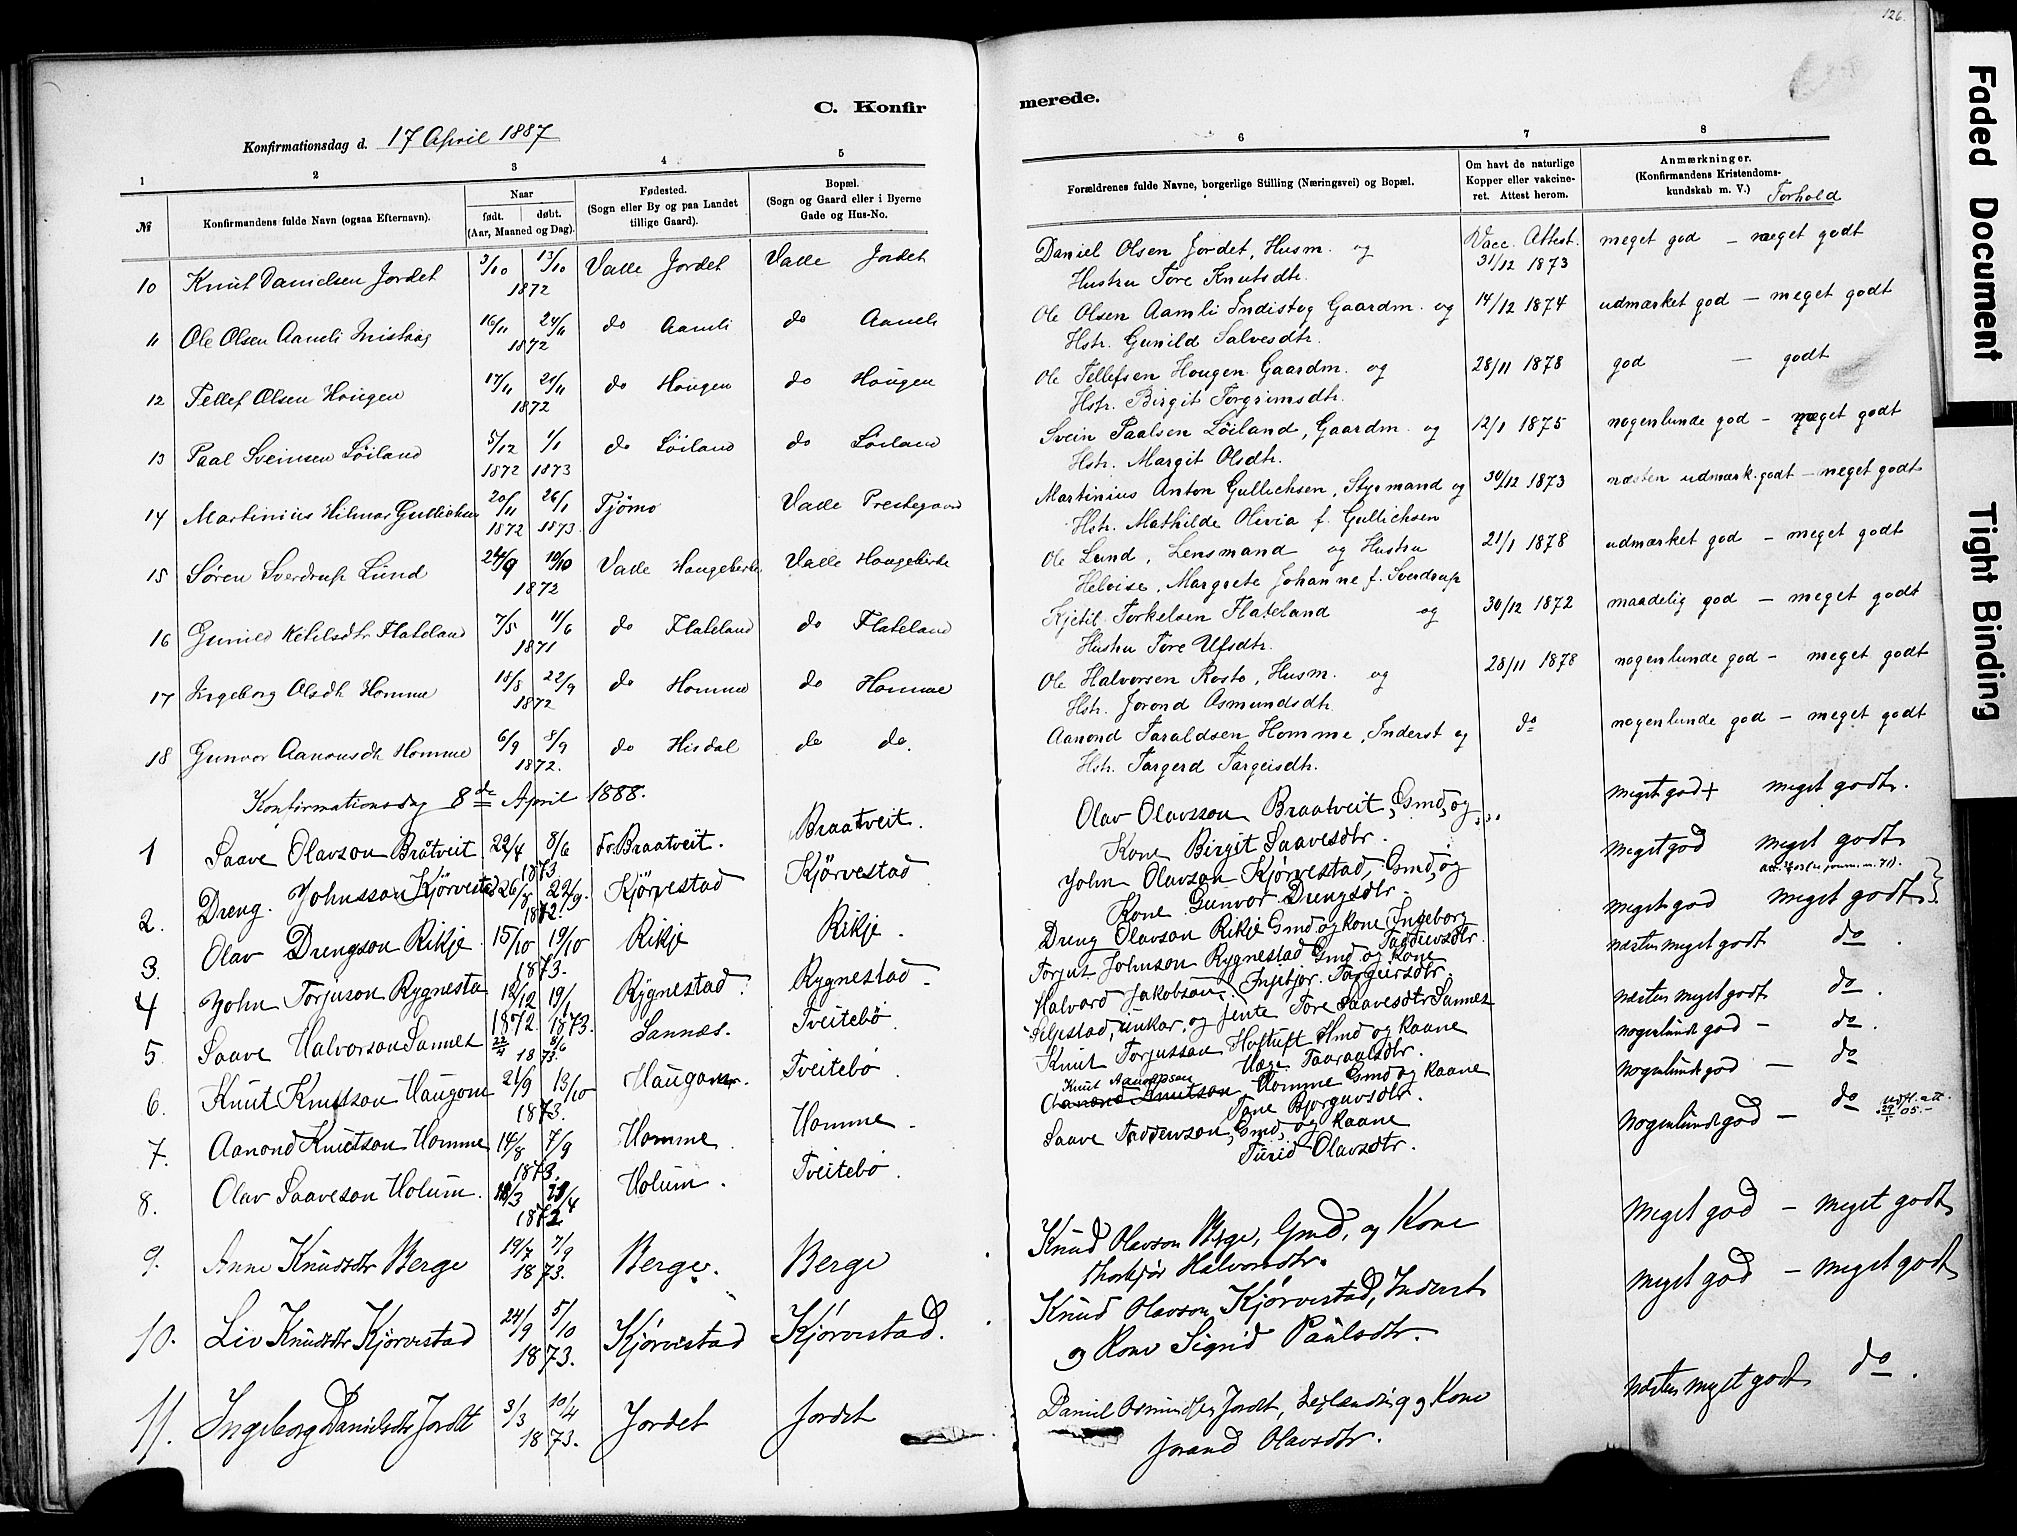 126.
C. Konfir
merede.
Konfirmationsdag d. 17 April 1887
1 2 3 4 5
6 7 8
№
Konfirmandens fulde Navn (ogsaa Efternavn).
Naar
født. døbt.
(Aar, Maaned og Dag).
Fødested.
(Sogn eller By og paa Landet
tillige Gaard).
Bopæl.
(Sogn og Gaard eller i Byerne
Gade og Hus-No.
Forældrenes fulde Navne, borgerlige Stilling (Næringsvei) og Bopæl.
Om havt de naturlige
Kopper eller vakcine-
ret. Attest herom.
Anmærkninger.
(Konfirmandens Kristendoms-
kundskab m. V.) Forhold
10 Knut Danielsen Jordet 3/10 13/10 Valle Jordet Valle Jordet
1872
Daniel Olsen Jordet, Husm. og Vacc. Attest. meget god – meget godt
Hustru Tore Knutsdtr. 31/12 1873
11 Ole Olsen Aamli Inistog 16/11 24/11 do Aamli do Aamli
1872
Ole Olsen Aamli Indistog Gaardm. og 14/12 1874 udmærket god – meget godt
Hstr. Gunild Salvesdtr.
12 Tellef Olsen Hougen 17/11 21/11 do Hougen do Hougen
1872
Ole Tellefsen Hougen Gaardm. og 28/11 1878 god – godt
Hstr. Birgit Torgrimsdtr.
13 Paal Sveinsen Löiland 5/12 1/1 do Löiland do Löiland
1872 1873
Svein Paalsen Löiland, Gaardm. og 12/1 1875 nogenlunde god – meget godt
Hstr. Margit Olsdtr.
14 Martinius Hilmar Gullichsen 20/11 26/1 Tjömö Valle Prestegaard
1872 1873.
Martinius Anton Gullichsen, Styrmand og 30/12 1873 næsten udmærk. godt – meget godt
Hstr. Mathilde Olivia f. Gullichsen
15 Søren Sverdrup Lund 24/9 10/10 Valle Haugekirke Valle Haugekirke
1872
Ole Lund, Lensmand og Hustru 21/1 1878 udmærket god – meget godt
Heloise, Margrete Johanne f. Sverdrup
16 Gunild Ketilsdtr Flateland 7/5 11/6 do Flateland do Flateland
1871
Kjetil Torkelsen Flateland og 30/12 1872 maadelig god – meget godt
Hustru Tore Ufsdtr.
17 Ingeborg Olsdtr Homme 18/8 22/9 do Homme do Homme
1872
Ole Halvorsen Rosto, Husm. og 28/11 1878 nogenlunde god – meget godt
Hstr. Jorond Asmundsdtr.
18 Gunvor Aanonsdtr Homme 6/9 8/9 do Hisdal do do.
1872.
Aanond Taraldsen Homme, Inderst og do nogenlunde god – meget godt
Hstr. Targerd Targeisdtr.
Konfirmationsdag 8de April 1888.
1 Saave Olavson Bråtveit 22/4 8/6 Braatveit. Braatveit.
1873
Olav Olavsson Braatveit, Gmd, og meget god + meget godt.
Kone Birgit Saavesdtr.
2. Dreng Johnsson Kjörvestad 26/8 22/9. Kjörvestad Kjörvestad
1872.
John Olavson Kjörvestad, Gmd, og meget god meget godt
Kone Gunvor Drengsdtr.
3. Olav Drengson Rikje 15/10 19/10 Rikje Rikje.
1873.
Dreng Olavson Rikje Gmd og kone Ingeborg meget god meget godt
Taddeivsdtr.
4 John Torjuson Rygnesta 12/12 19/1 Rygnestad Rygnestad
1872 1873.
Torjut Johnson Rygnestad Gmd og Kone næsten meget godt do.
Ingebjor Targeirsdtr.
5. Saave Halvorson Sannes 22/4 8/6 Sannæs. Tveitebö
1873.
Halvard Jakobson næsten meget godt do.
ungkar, og jente Tore Saavesdtr Sannes
6. Knut Knutson Haugom 21/9 13/10 Haugom. Tveitebö
1873.
Knut Torjusson Hoftuft Hmd og Kaane nogenlunde god – do.
Hage Taaraalsdtr.
7. Aanond Knutson Homme 14/8 7/9 Homme. Homme.
1873.
Knut Aanondson
Aanond Knutson Homme Gmd og Kaane nogenlunde god – do
Tone Bjorgulvsdtr.
8. Olav Saaveson Holum. 18/3 21/4 Holum. Tveitebö.
1872
Saave Taddeivson, Gmd, og Kaane nogenlunde god – do Udfl. att. 29/5 05.–
Turid Olavsdtr.
9. Anne Knudsdtr Berge 19/7 7/9 Berge. Berge
1873.
Knud Olavson Berge, Gmd, og Kone meget god – meget godt
Thorbjör Halvorsdtr.
10. Liv Knudsdtr Kjörvestad 24/9 5/10 Kjörvestad Kjörvestad.
1873.
Knud Olavson Kjörvestad, Inderst meget god – meget godt
og Kone Sigrid Paulsdtr.
11. Ingeborg Danielsdtr Jordet 3/3 10/4 Jordet Jordet
1873.
Daniel Osmundsen Jordet, og Kone næsten meget godt do.
Jorand Olavsdtr.
Faded Document
Tight Binding